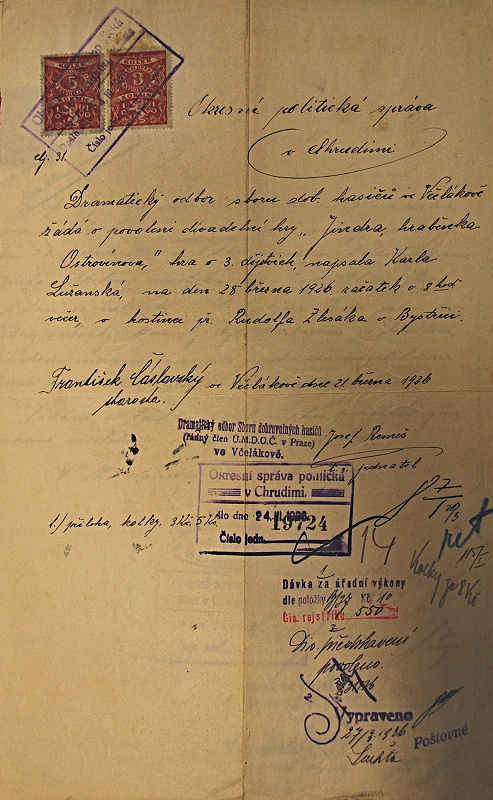 KOLEK
5
KORUN
KOLEK
3
KORUNY
Číslo jedn.
čj. 31.
Okresní politická správa
v Chrudimi
Dramatický odbor sboru dob. hasičů ve Včelákově
žádá o povolení divadelní hry „Jindra, hraběnka
Ostrovínova," hra o 3. dějstvích, napsala Karla
Lužanská, na den 28 března 1926 začátek o 8 hod
večer, v hostinci p. Rudolfa Zlesáka v Bystřici.
František Čáslavský ve Včelákově dne 21 března 1926
starosta.
Dramatický odbor Sboru dobrovolných hasičů
(řádný člen Ú.M.D.O.Č. v Praze)
ve Včelákově.
Josef Remeš
jednatel
Okresní správa politická
v Chrudimi,
došlo dne 24.III.1926
19724
Číslo jedn.
1.) příloha, kolky 3 Kč 5 Kč
14
Kolky za 8 Kč
Dávka za úřední výkony
dle položky Kč 10
Čís. rejstříku 550
Div. představení
povoleno.
Vypraveno
27/3. 1926
Poštovné